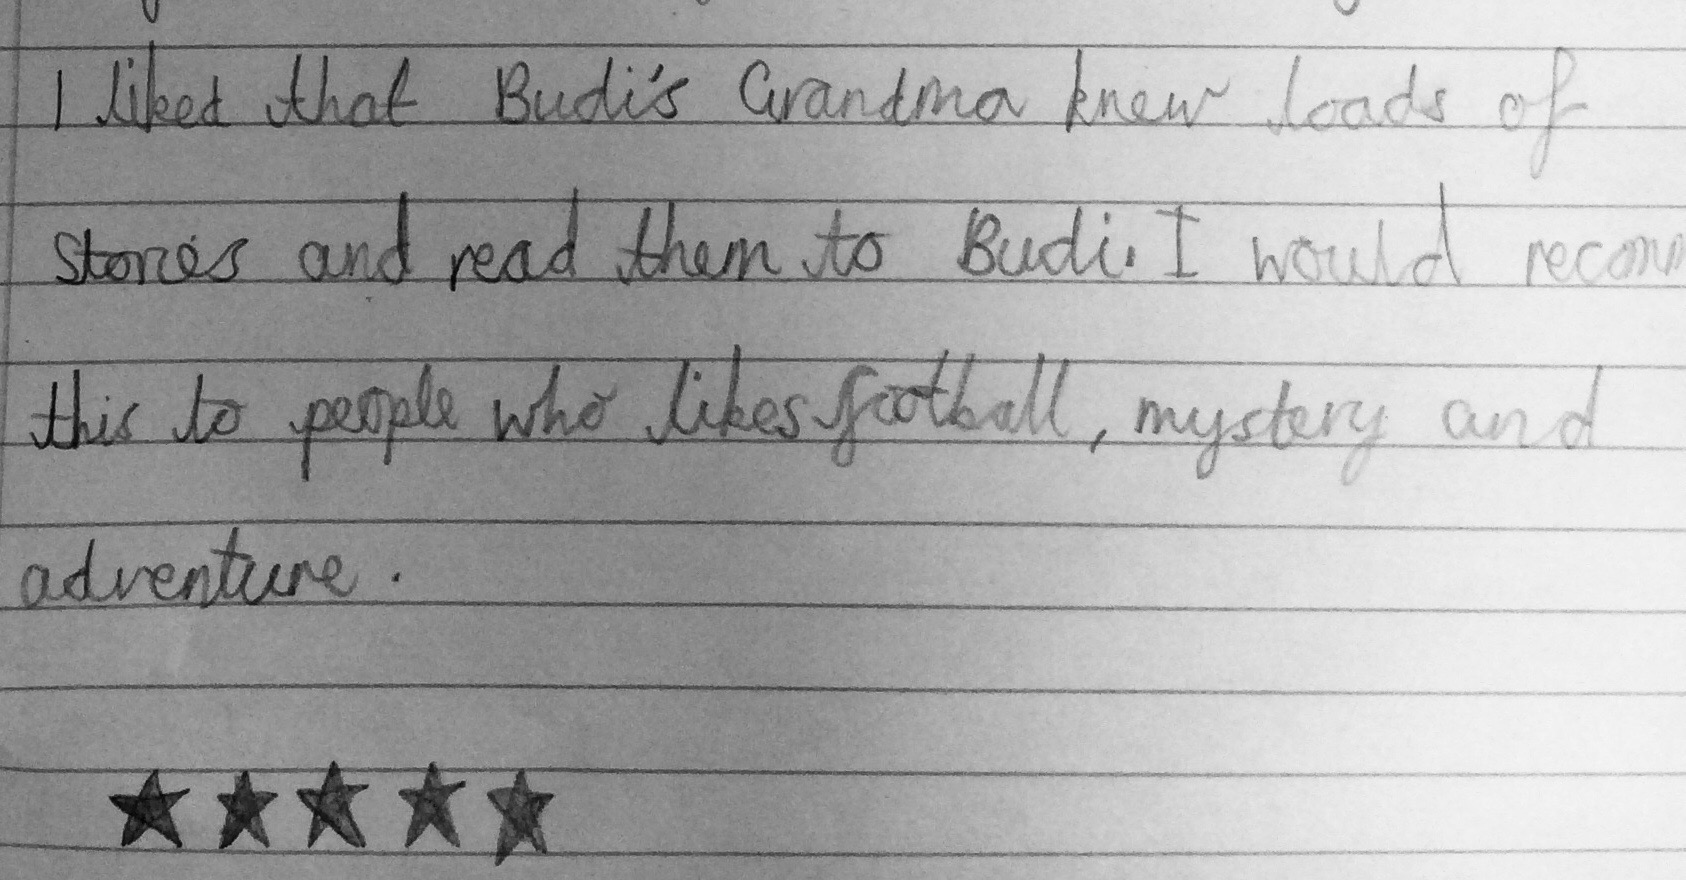 I liked that Budi's Grandma knew loads of
stories and read them to Budi. I would recom
this to people who likes football, mystery and
adventure.
★★★★★